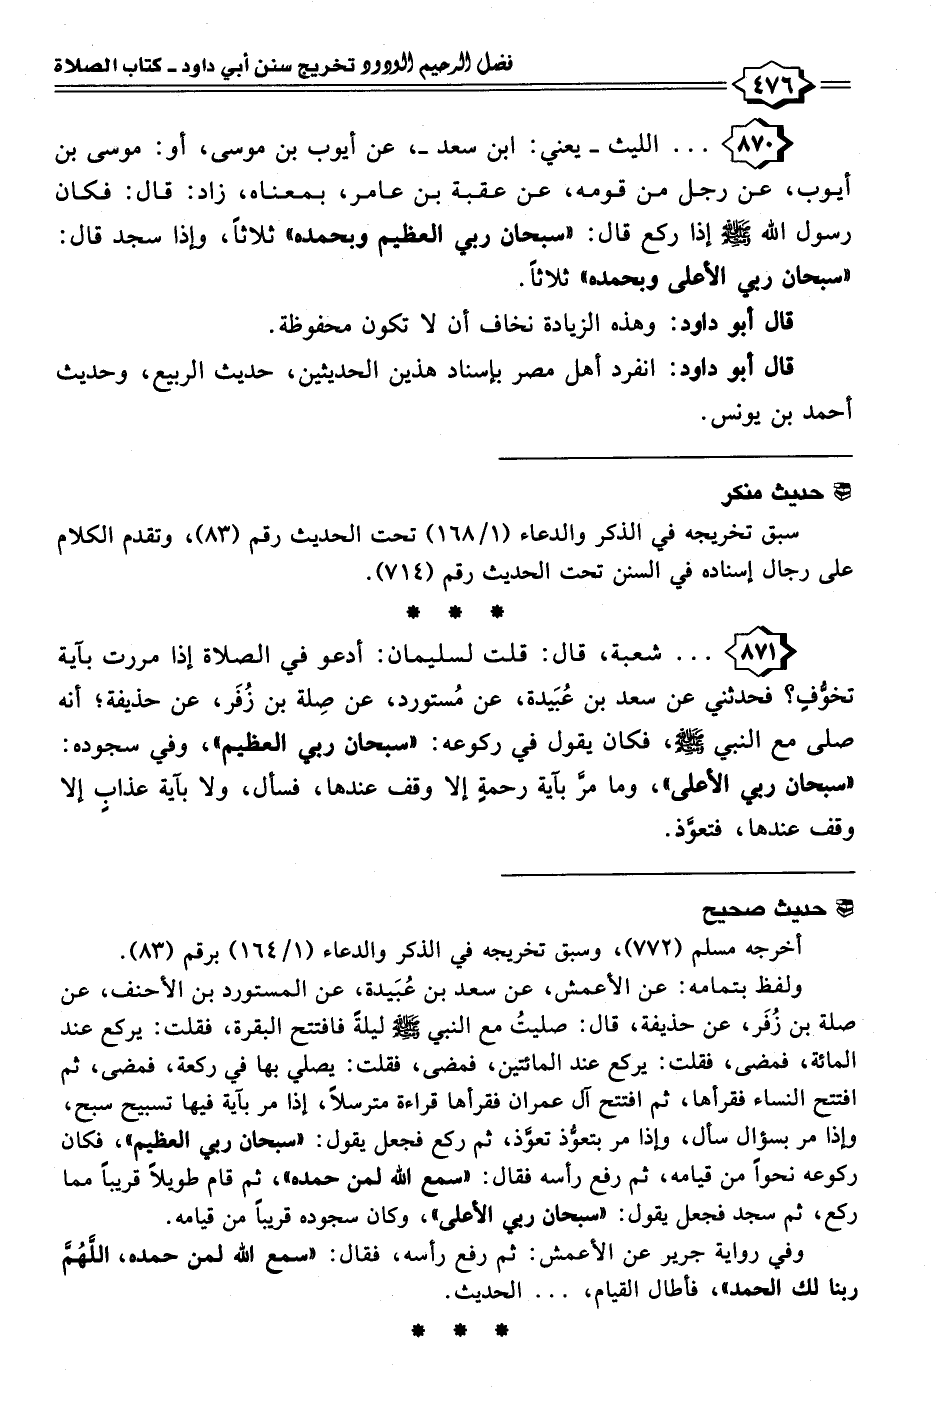 فضل الرحيم الودود تخريج سنن أبي داود ـ كتاب الصلاة
٤٧٦
٨٧٠ ... الليث ـ يعني: ابن سعد ـ، عن أيوب بن موسى، أو: موسى بن
أيوب، عن رجل من قومه، عن عقبة بن عامر، بمعناه، زاد: قال: فكان
رسول الله ﷺ إذا ركع قال: «سبحان ربي العظيم وبحمده» ثلاثاً، وإذا سجد قال:
«سبحان ربي الأعلى وبحمده» ثلاثاً.
قال أبو داود: وهذه الزيادة نخاف أن لا تكون محفوظة.
قال أبو داود: انفرد أهل مصر بإسناد هذين الحديثين، حديث الربيع، وحديث
أحمد بن يونس.
حديث منكر
سبق تخريجه في الذكر والدعاء (١/١٦٨) تحت الحديث رقم (٨٣)، وتقدم الكلام
على رجال إسناده في السنن تحت الحديث رقم (٧١٤).
* * *
٨٧١ ... شعبة، قال: قلت لسليمان: أدعو في الصلاة إذا مررت بآية
تخوُّفٍ؟ فحدثني عن سعد بن عُبَيدة، عن مُستورد، عن صِلة بن زُفَر، عن حذيفة؛ أنه
صلى مع النبي ﷺ، فكان يقول في ركوعه: «سبحان ربي العظيم»، وفي سجوده:
«سبحان ربي الأعلى»، وما مرَّ بآية رحمةٍ إلا وقف عندها، فسأل، ولا بآية عذابٍ إلا
وقف عندها، فتعوَّذ.
حديث صحيح
أخرجه مسلم (٧٧٢)، وسبق تخريجه في الذكر والدعاء (١/١٦٤) برقم (٨٣).
ولفظ بتمامه: عن الأعمش، عن سعد بن عُبَيدة، عن المستورد بن الأحنف، عن
صلة بن زُفَر، عن حذيفة، قال: صليتُ مع النبي ﷺ ليلةً فافتتح البقرة، فقلت: يركع عند
المائة، فمضى، فقلت: يركع عند المائتين، فمضى، فقلت: يصلي بها في ركعة، فمضى، ثم
افتتح النساء فقرأها، ثم افتتح آل عمران فقرأها قراءة مترسلاً، إذا مر بآية فيها تسبيح سبح،
وإذا مر بسؤال سأل، وإذا مر بتعوُّذ تعوَّذ، ثم ركع فجعل يقول: «سبحان ربي العظيم»، فكان
ركوعه نحواً من قيامه، ثم رفع رأسه فقال: «سمع الله لمن حمده»، ثم قام طويلاً قريباً مما
ركع، ثم سجد فجعل يقول: «سبحان ربي الأعلى»، وكان سجوده قريباً من قيامه.
وفي رواية جرير عن الأعمش: ثم رفع رأسه، فقال: «سمع الله لمن حمده، اللَّهُمَّ
ربنا لك الحمد»، فأطال القيام، ... الحديث.
* * *